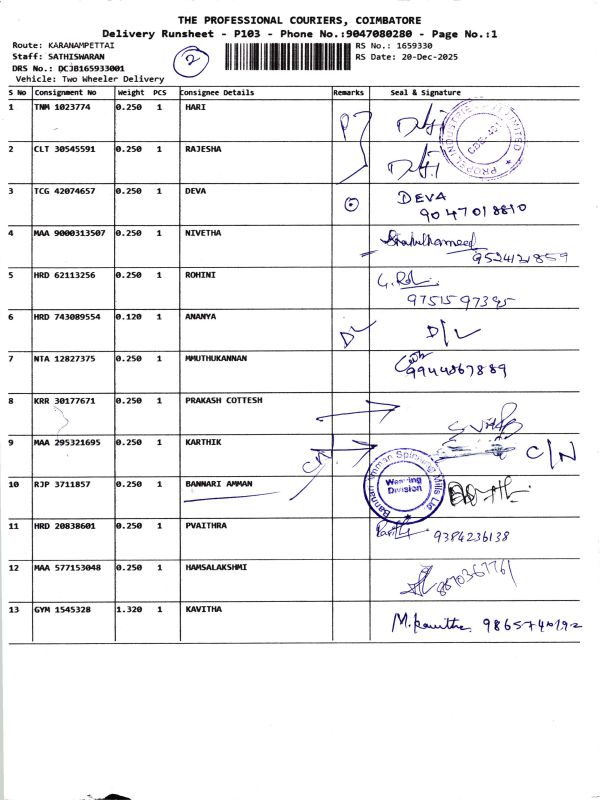 THE PROFESSIONAL COURIERS, COIMBATORE
Delivery Runsheet - P103 - Phone No.:9047080280 - Page No.:1
Route: KARANAMPETTAI
Staff: SATHISWARAN
DRS No.: DCJB165933001
Vehicle: Two Wheeler Delivery
2
RS No.: 1659330
RS Date: 20-Dec-2025
S No Consignment No Weight PCS Consignee Details Remarks Seal & Signature
1 TNM 1023774 0.250 1 HARI
2 CLT 30545591 0.250 1 RAJESHA
3 TCG 42074657 0.250 1 DEVA DEVA
9047018810
4 MAA 9000313507 0.250 1 NIVETHA Shahulhameed
9524121859
5 HRD 62113256 0.250 1 ROHINI
9751597395
6 HRD 743089554 0.120 1 ANANYA D/L D/L
7 NTA 12827375 0.250 1 MMUTHUKANNAN
9944867889
8 KRR 30177671 0.250 1 PRAKASH COTTESH
9 MAA 295321695 0.250 1 KARTHIK C/N
10 RJP 3711857 0.250 1 BANNARI AMMAN Bannari Amman Spinning Mills Ltd
Weaving
Division
11 HRD 20838601 0.250 1 PVAITHRA 9384236138
12 MAA 577153048 0.250 1 HAMSALAKSHMI
13 GYM 1545328 1.320 1 KAVITHA M.Kavitha 9865740192